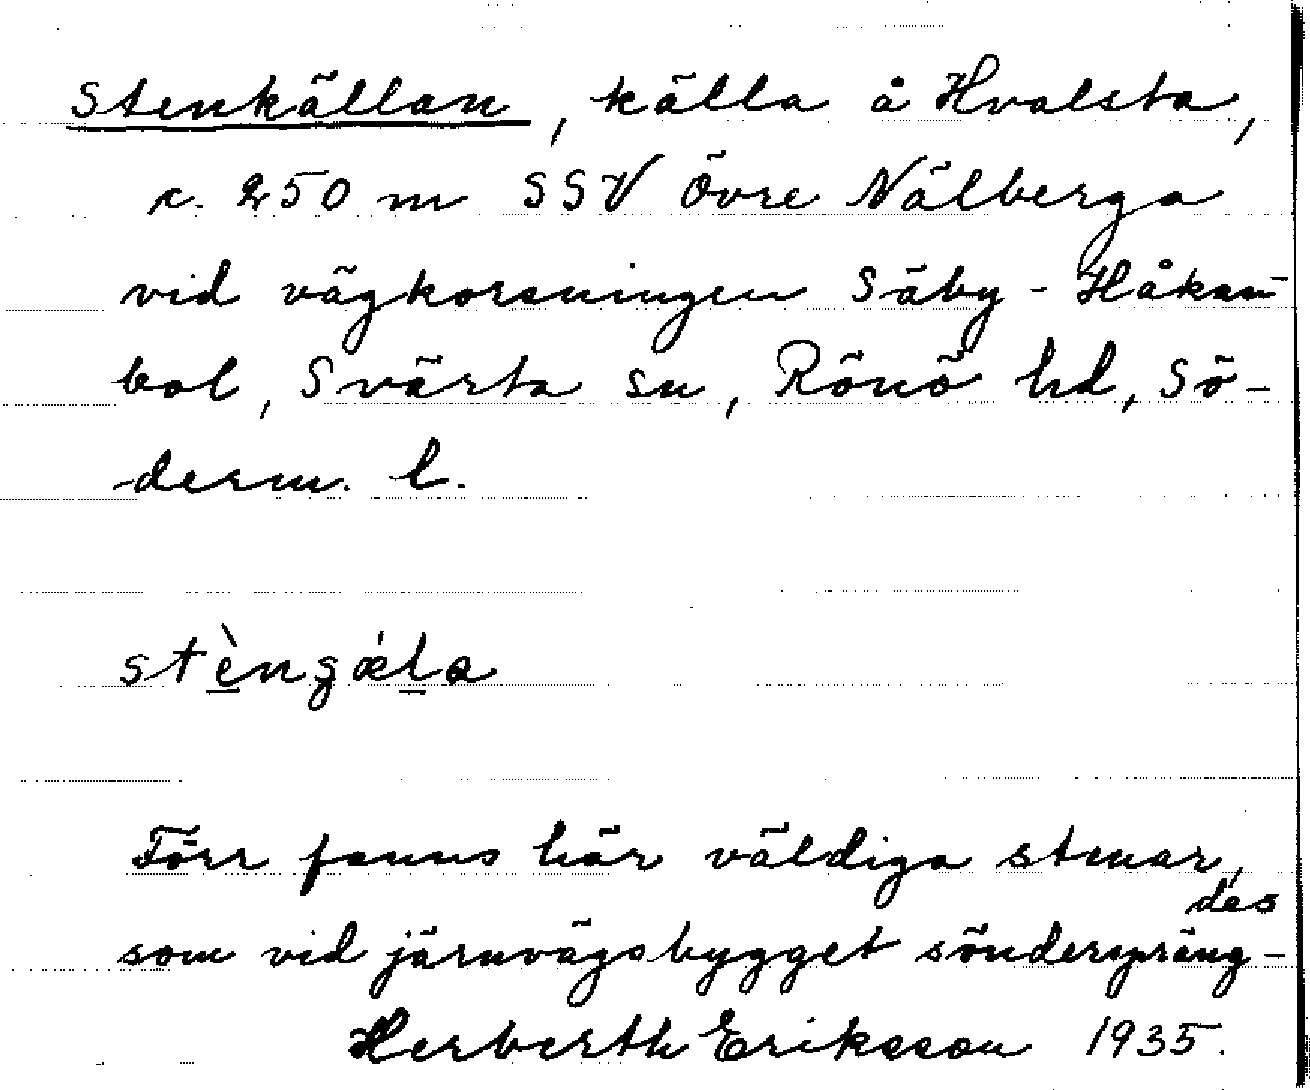 Stenkällan, källa å Hvalsta,
c. 250 m SSV Övre Nälberga
vid vägkorsningen Säby - Håkan-
bol, Svärta sn, Rönö hd, Sö-
derm. l.
stèngǽla
Förr fanns här väldiga stenar,
som vid järnvägsbygget sönderspräng-
des
Herberth Eriksson 1935.